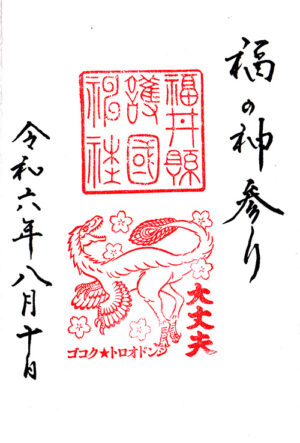 福の神参り
福井縣
護國
神社
大丈夫
ゴコク★トロオドン
令和六年八月十日